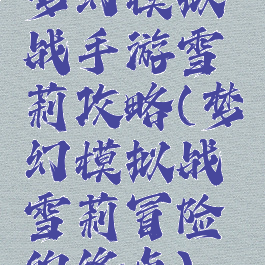 梦幻模拟
战手游雪
莉攻略(梦
幻模拟战
雪莉冒险
的终点)